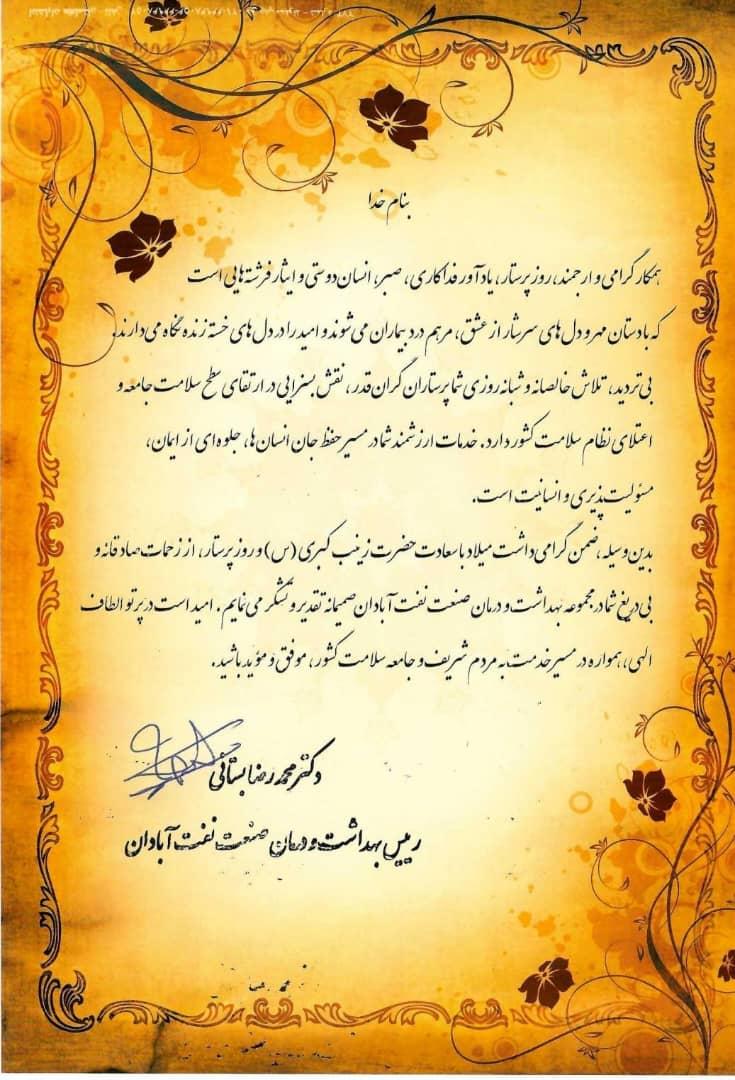 بنام خدا
همکار گرامی و ارجمند، روز پرستار، یادآور فداکاری، صبر، انسان دوستی و ایثار فرشته هایی است
که با دستان مهر و دل های سرشار از عشق، مرهم درد بیماران می شوند و امید را در دل های خسته زنده نگاه می دارند.
بی تردید، تلاش خالصانه و شبانه روزی شما پرستاران گران قدر، نقش بسزایی در ارتقای سطح سلامت جامعه و
اعتلای نظام سلامت کشور دارد. خدمات ارزشمند شما در مسیر حفظ جان انسان ها، جلوه ای از ایمان،
مسئولیت پذیری و انسانیت است.
بدین وسیله، ضمن گرامی داشت میلاد با سعادت حضرت زینب کبری (س) و روز پرستار، از زحمات صادقانه و
بی دریغ شما در مجموعه بهداشت و درمان صنعت نفت آبادان صمیمانه تقدیر و تشکر می نمایم. امید است در پرتو الطاف
الهی، همواره در مسیر خدمت به مردم شریف و جامعه سلامت کشور، موفق و مؤید باشید.
دکتر محمدرضا بستانی
رییس بهداشت و درمان صنعت نفت آبادان